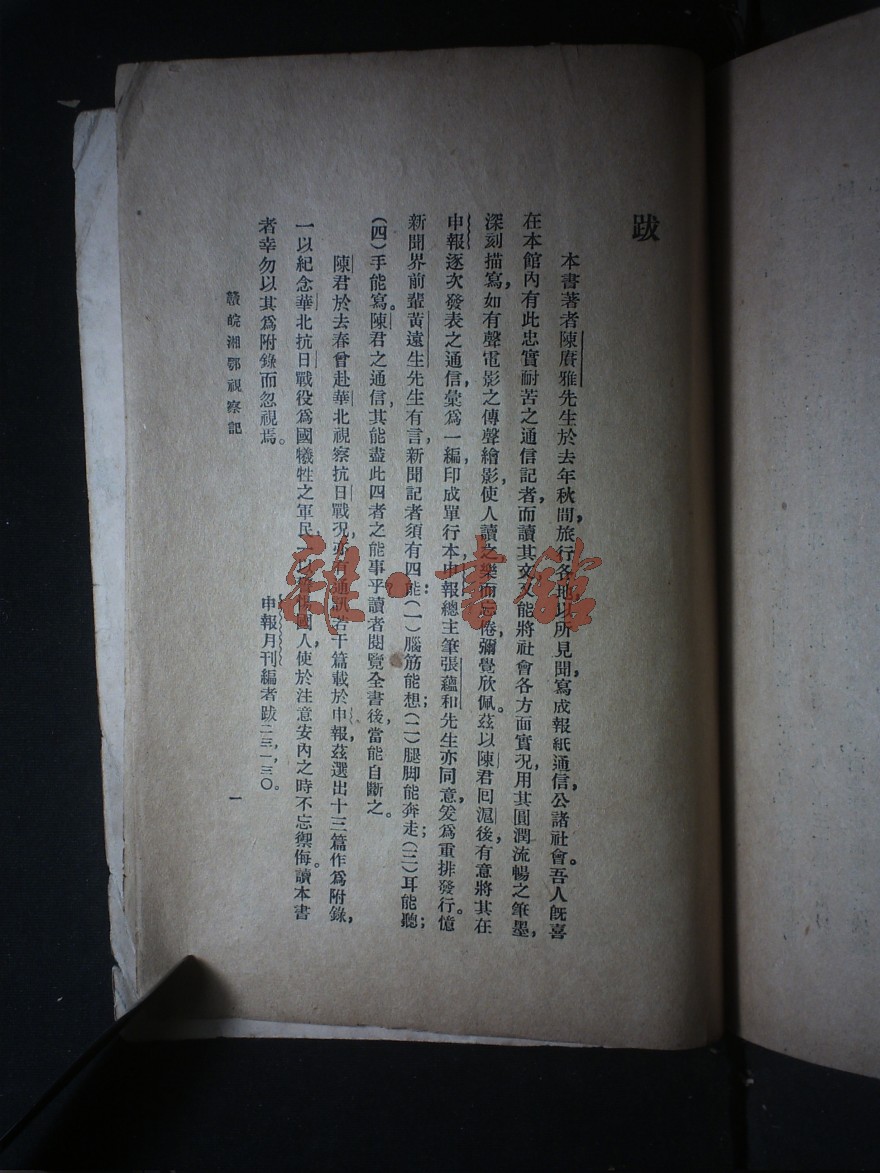 跋
本書著者陳賡雅先生於去年秋間，旅行各地以所見聞寫成報紙通信公諸社會。吾人旣喜
在本館內有此忠實耐苦之通信記者，而讀其文又能將社會各方面實況，用其圓潤流暢之筆墨，
深刻描寫，如有聲電影之傳聲繪影，使人讀之樂而忘倦，彌覺欣佩。茲以陳君囘滬後，有意將其在
申報逐次發表之通信，彙爲一編，印成單行本，申報總主筆張蘊和先生亦同意，爰爲重排發行。憶
新聞界前輩黃遠生先生有言，新聞記者須有四能：（一）腦筋能想；（二）腿脚能奔走；（三）耳能聽；
（四）手能寫。陳君之通信，其能盡此四者之能事乎？讀者閱覽全書後，當能自斷之。
陳君於去春曾赴華北視察抗日戰況，亦有通訊若干篇載於申報，茲選出十三篇作爲附錄，
一以紀念華北抗日戰役爲國犧牲之軍民，一以國人使於注意安內之時不忘禦侮。讀本書
者幸勿以其爲附錄而忽視焉。
申報月刊編者跋二三，一，三〇。
贛皖湘鄂視察記
一
雜·書館